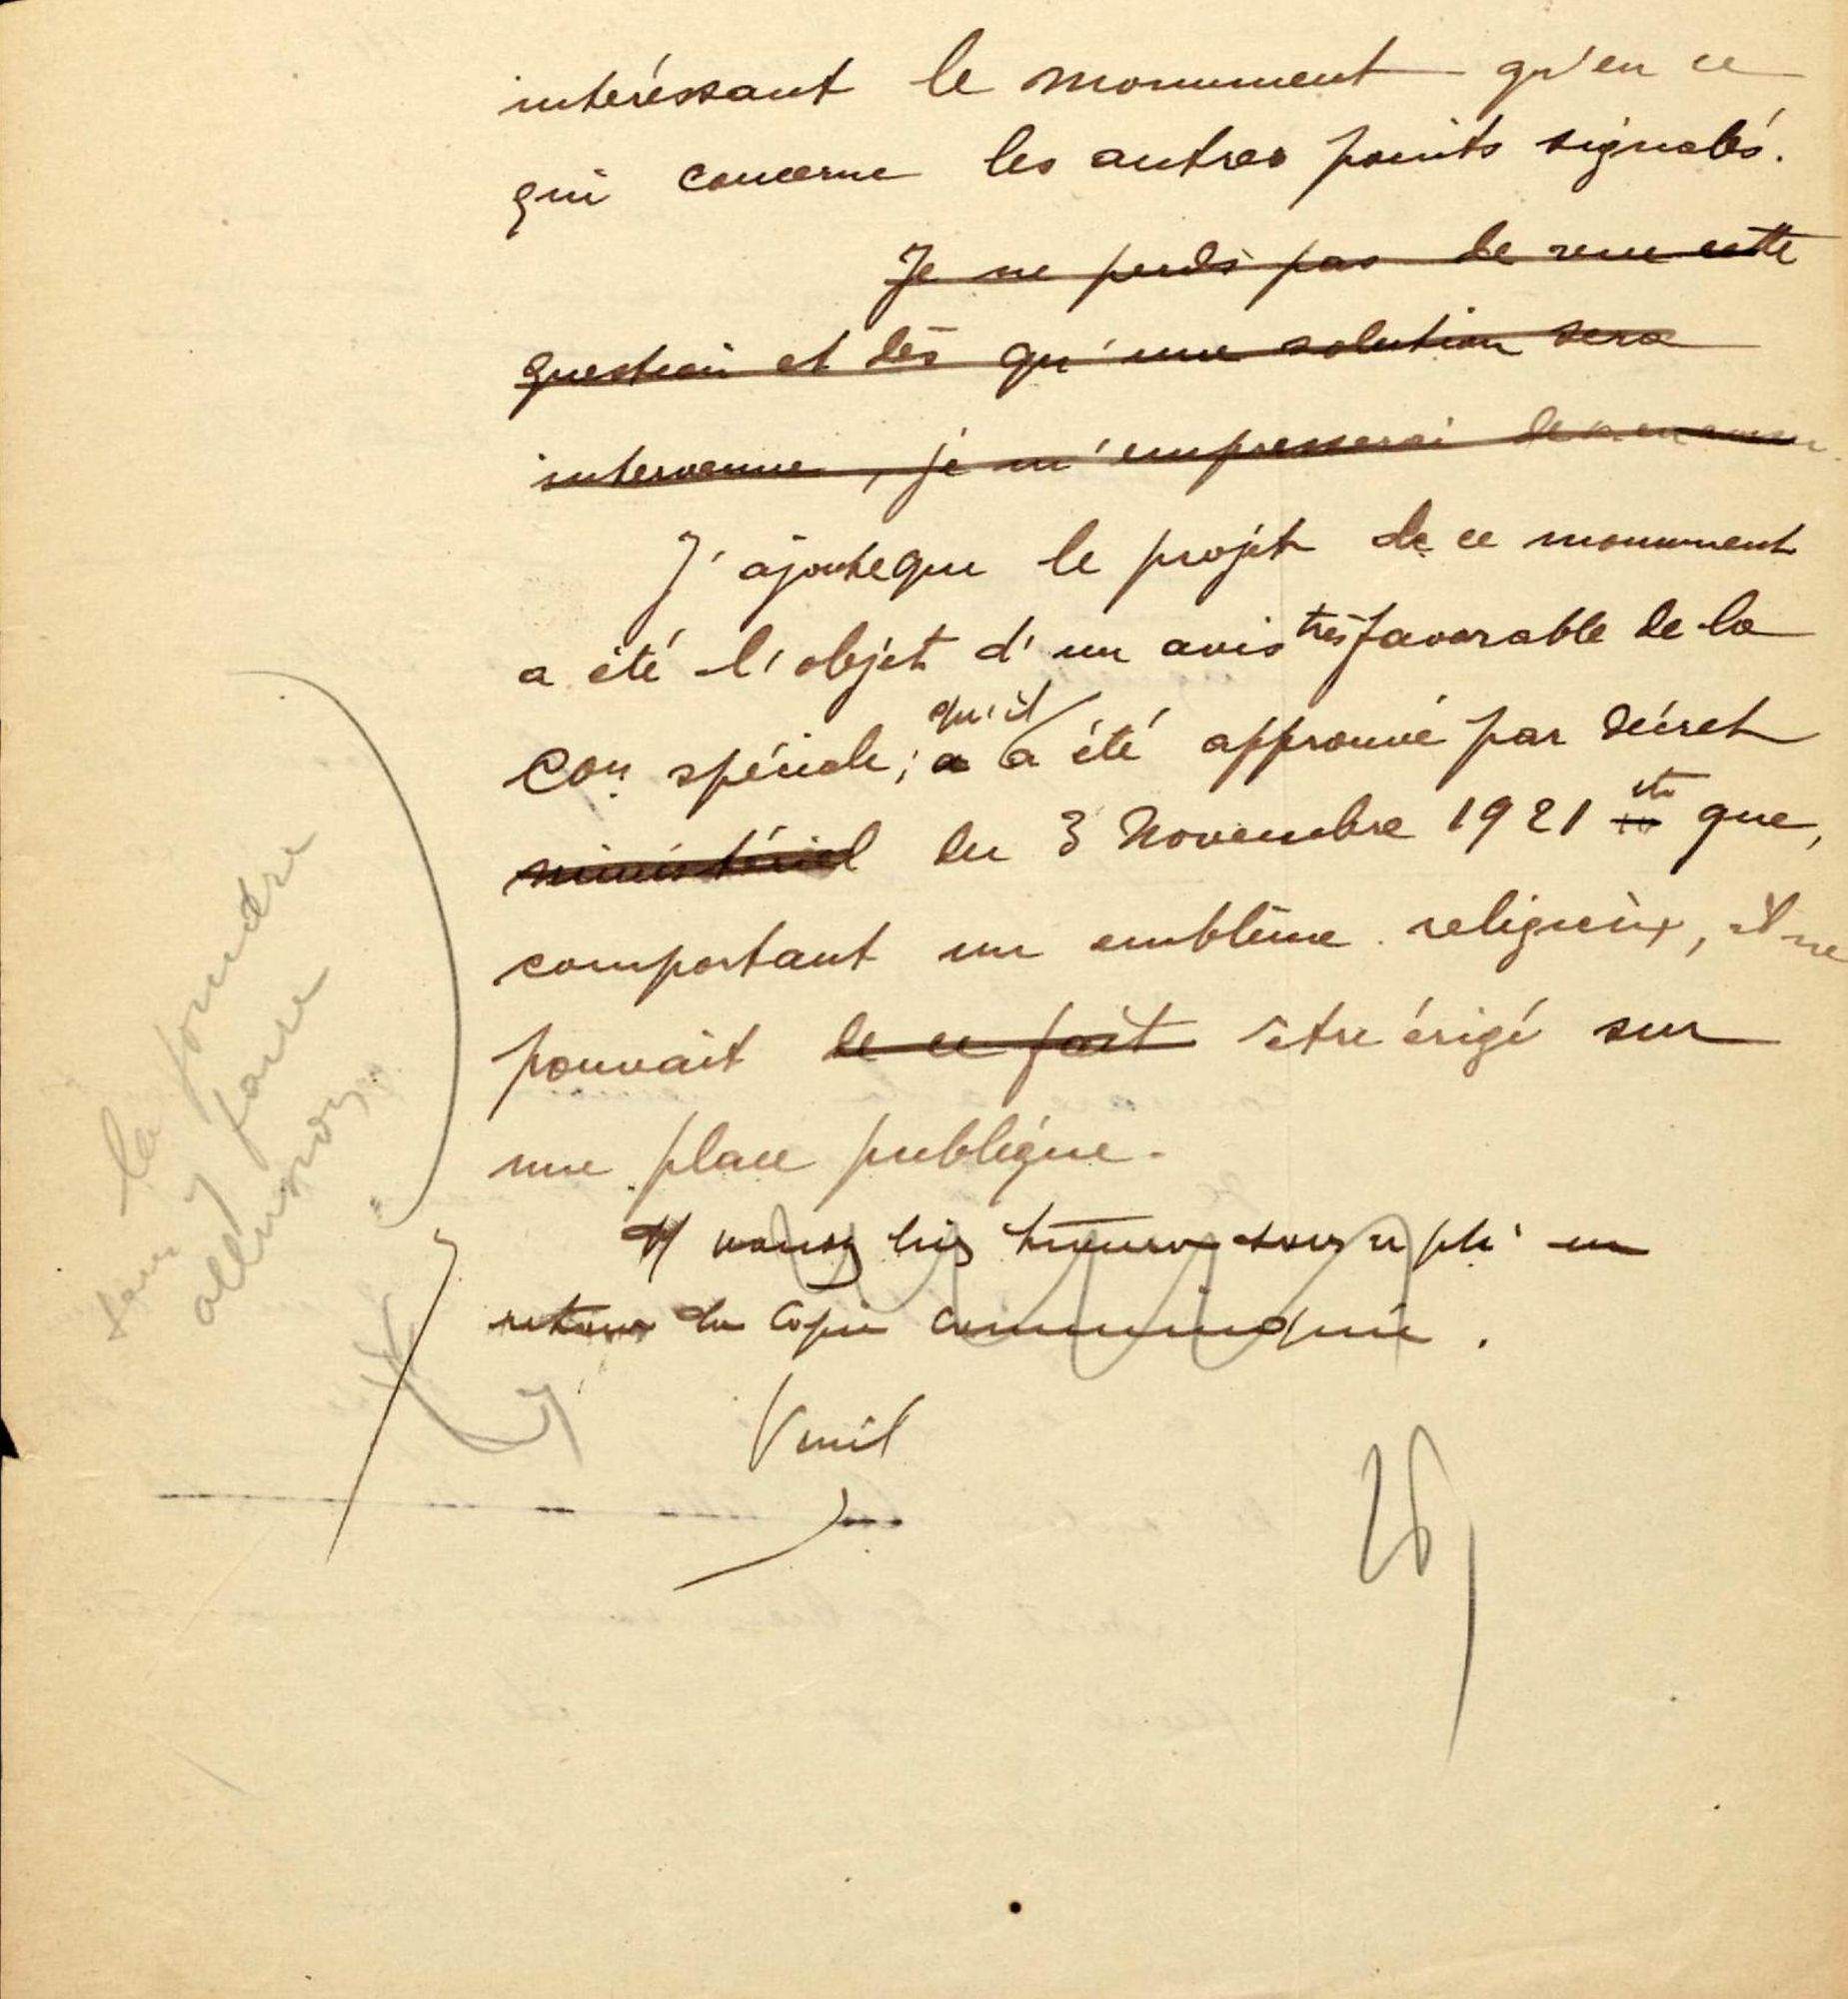 intéréssant le monument qu'en ce
qui concerne les autres points signalés.
Je ne perds pas de vue cette
question et dès qu'une solution sera
intervenue, je m'empresserai de
J'ajoute que le projet de ce monument
a été l'objet d'un avis très favorable de la
Con spéciale; qu'il a été approuvé par décret
ministériel du 3 Novembre 1921 et que,
comportant un emblème religieux, il ne
pouvait de ce fait être érigé sur
une place publique.
sous ce pli en
retour la copie communiquée.
la joindre
sans y faire
allusion
26